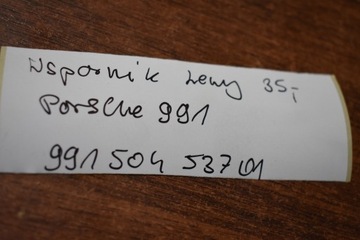 Wspornik Lewy 35,-
Porsche 991
991 504 537 01